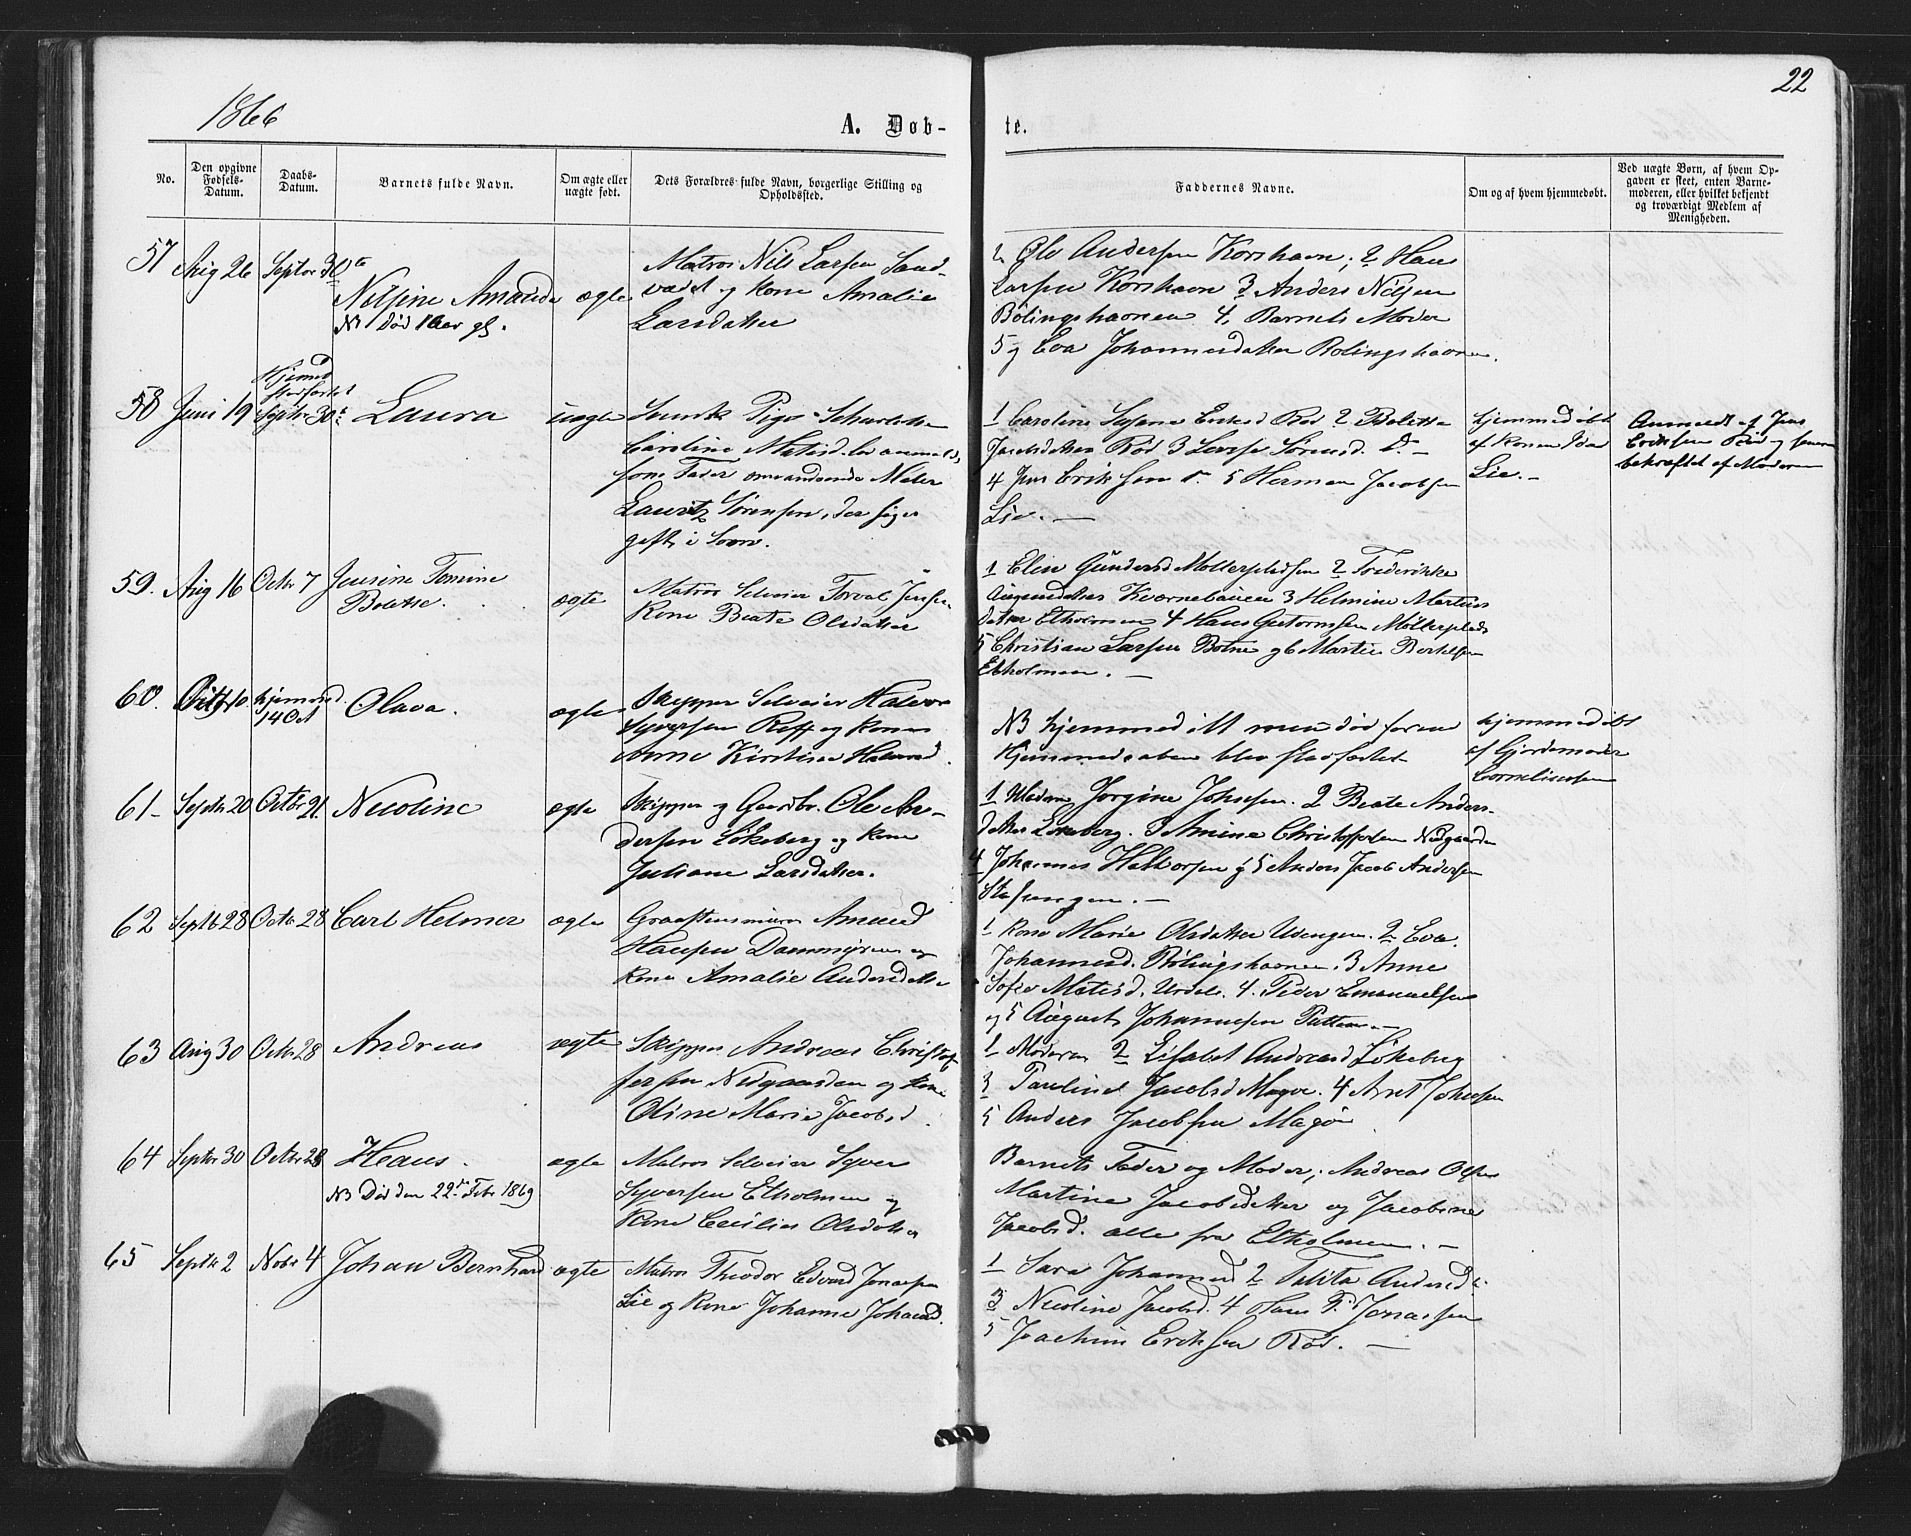 1866
22
A. Døb-
te.
No.
Den opgivne Fødsels-Datum.
Daabs-Datum.
Barnets fulde Navn.
Om ægte eller uægte født.
Dets Forældres fulde Navn, borgerlige Stilling og Opholdssted.
Faddernes Navne.
Om og af hvem hjemmedøbt.
Ved uægte Børn, af hvem Op-
gaven er skeet, enten Barne-
moderen, eller hvilket bekjendt
og troværdigt Medlem af
Menigheden.
57 Aug 26 Septbr 30te
Nilsine Amanda ægte
NB død 1 Aar gl.
Matros Nils Larsen Sand-
vædet og Kone Amalie
Larsdatter
1 Ole Andersen Korshavn; 2 Hans
Larsen Korshavn 3 Anders Nilsen
Bölingshavnen 4, Barnets Moder
5 og Eva Johannesdatter Rölingshavnen.
58 Juni 19 Hjemmed stadfæstet Septbr 30te Laura uægte
Pige
Caroline Matisd.
som Fader omvandrende Maler
Lauritz Sörensen, der siger
gift i
1 Caroline Susane Eriksd Röd 2 Bolette
Jacobsdatter Röd 3 Sörensd. D. -
4 Jens Eriksen 5 Herman Jacobsen
Lie. -
hjemmedöbt
af Konen Ida
Lie. -
Anmeldt af Jens
Eriksen Röd og senere
bekræftet af Moderen
59. Aug 16 Octbr 7 Jensine Tomine
Bolette. ægte
Matros Selveier Torval Jensen
Kone Beate Olsdatter
1 Elen Gundersd Möllerpladsen 2 Frederikke
Kværnebaueen 3 Helmine Martins
datter Elholmen 4 Hans Guttormsen Möllerplads
5 Christian Larsen Botne og 6 Martin Bertelsen
Elholmen. -
60. 10 hjemmed. 14 Oct Olava. ægte
Skipper Selveier Halvor
Syversen Röff og Kone
Anne Kirstine Halvorsd.
NB hjemmedöbt men död forinden
Hjemmedaaben blev stadfæstet
hjemmedöbt
af Gjordemoder
Corneliussen
61- Septbr 20 Octbr 21. Nicoline ægte
Skipper og Gaardbr. Ole An-
dersen Lökeberg og Kone
Juliane Larsdatter.
1 Jorgine Johnsen. 2 Beate Anders-
datter Lökeberg. 3 Amine Christoffersen Nedgaarden
4 Johannes Halvorsen og 5 Anders Jacob Andersen
62 Septb 28 Octbr 28 Carl Helmer ægte
Amund
Hansen Dammyren og
Kone Amalie Andersdatter
1 Kone Marie Olsdatter 2 Eva
Johannesd. Rölingshavnen. 3 Anne
Sofie Matisd. 4. Peder Emanuelsen
og 5 August Johannesen Putten. -
63 Aug 30 Octbr 28 Andreas ægte
Skipper Andreas Christof-
fersen Nedgaarden og Kone
Oline Marie Jacobsd.
1 Moderen 2 Elisabet Andreasd Lökeberg
3 Pauline Jacobsd Magøe. 4 Arnt Johnsen
5 Anders Jacobsen Magö
64 Septbr 30 Octbr 28 Hans. ægte
NB Död den 22de Febr 1869
Matros Selveier Syver
Syversen Elholmen og
Kone Cecilie Olsdatter
Barnets Fader og Moder; Andreas Olsen
Martine Jacobsdatter og Jacobine
Jacobsd. alle fra Elholmen. -
65 Septbr 2 Nobr 4 Johan Bernhard ægte
Matros Theodor Edvard Jonassen
Lie og Kone Johanne Johansd.
1 Sara Johannesd 2 Talita Andersdtr.
3 Nicoline Jacobsd. 4 Hans P. Jonassen
5 Joachim Eriksen Röd. -